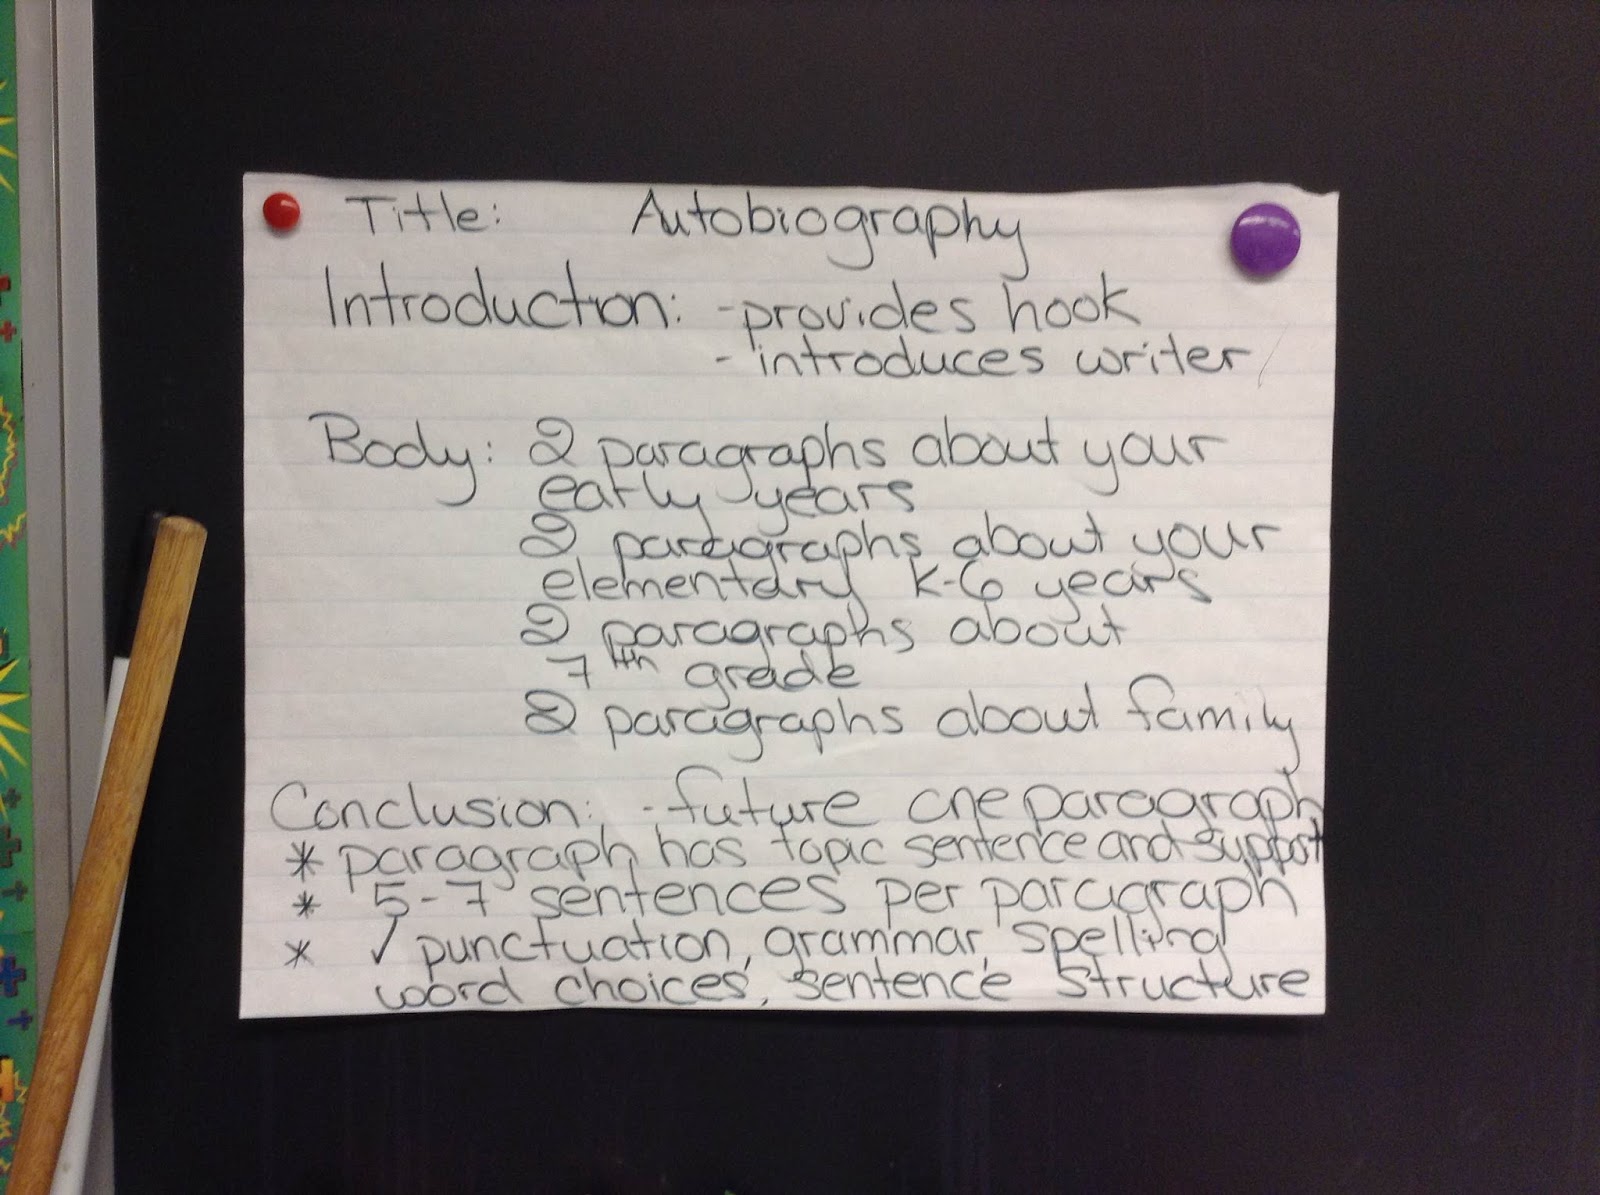 Title: Autobiography
Introduction: - provides hook
- introduces writer
Body: 2 paragraphs about your
early years
2 paragraphs about your
elementary K-6 years
2 paragraphs about
7th grade
2 paragraphs about family
Conclusion: - future one paragraph
* paragraph has topic sentence and support
* 5-7 sentences per paragraph
* ✓ punctuation, grammar, spelling
word choices, sentence structure